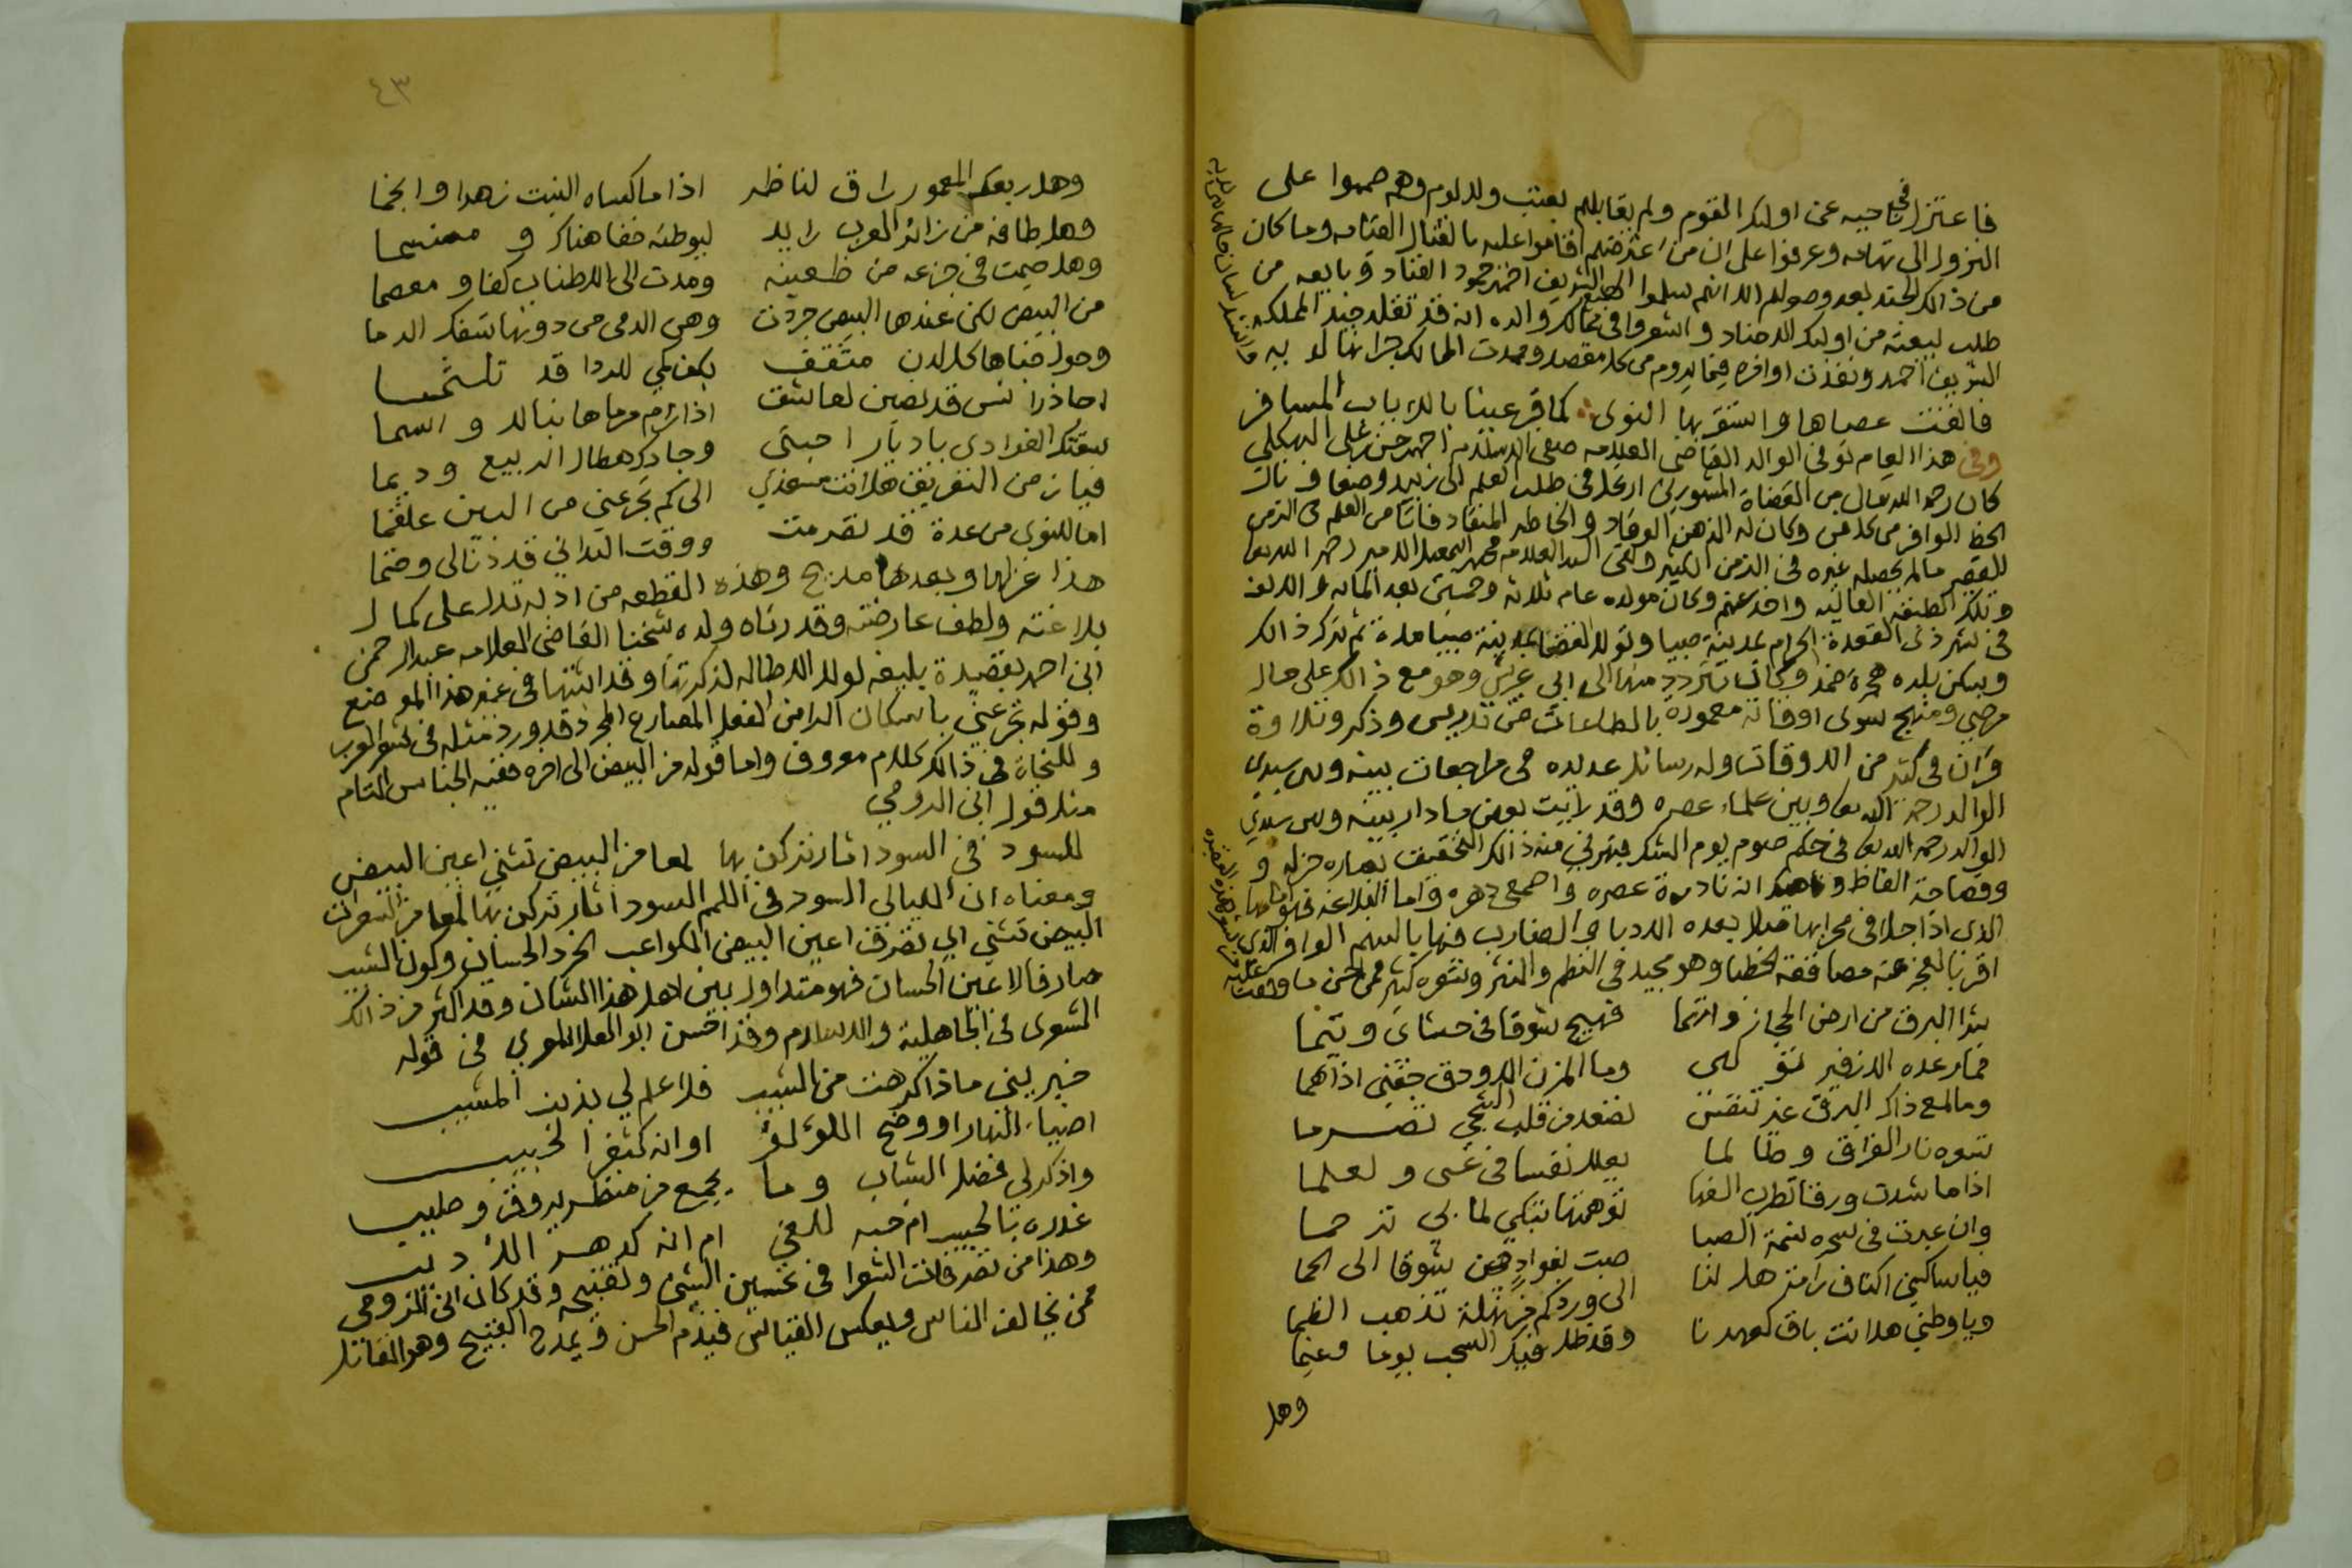 فاعتزل في ناحيه عن اولئك القوم ولم يقابلهم بعتب ولا لوم وهم صمموا على
النزول الى تهامه وعرفوا على ان من اعترضهم اقاموا عليه بالقتال القتامه وما كان
من ذالك الجند بعد وصولهم الا انهم سلموا الى الشريف احمد حمود القياد و بايعه من
طلب لبيعته من اولئك الاجناد و اشعروا في ممالك والده انه قد تقلد جند المملكه
الشريف احمد ونفذت اوامره فيما يروم من كل مقصد ومهدت الممالك جرانها لديه
فالقت عصاها واستقر بها النوى كما قر عينا بالاياب المسافر
وفي هذا العام توفي الوالد القاضي العلامه صفي الاسلام احمد حسن علي البهكلي
كان رحمه الله تعالى من القضاة المشهورين ارتحل في طلب العلم الى زبيد وصنعا ونال
الحظ الوافر من كل فن وكان له الذهن الوقاد والخاطر المنقاد فنال من العلم في الزمن
القصير مالم يحصله غيره في الزمن الكثير ولقي السيد العلامه محمد اسمعيل الامير رحمه الله تعالى
وتلك الطبقه العاليه واخذ عنهم وكان مولده عام ثلاثه وخمسين بعد المائه والالف
في شهر ذي القعدة الحرام بمدينة صبيا وتولى القضا بمدينة صبيا مدة ثم ترك ذالك
وسكن بلده هجرة ضمد وكان يتردد منها الى ابي عريش وهو مع ذالك على حال
مرضي ومنهج سوي اوقاته معمورة بالطاعات من تدريس وذكر وتلاوة
قران في كثير من الاوقات وله رسائل عديده في مراجعات بينه وبين سيدي
الوالد رحمه الله تعالى وبين علماء عصره وقد رايت بعض ما دار بينه وبين سيدي
الوالد رحمه الله تعالى في حكم صوم يوم الشك فبهرني منه ذالك التحقيق بعباره جزله و
وفصاحة الفاظ و انه نادرة عصره واصمعي دهره واما البلاغه فهو امامها
الذي اذا جلا في محرابها بعده الادبا و الضارب فيها بالسهم الوافر الذي
اقر بالعجز عنه مصاقعة الخطبا وهو مجيد في النظم والنثر وشعره كثير فمن احسن ما وقفت
بدا البرق من ارض الحجاز وارتما فهيج شوقا في حشاي و تيما
فما رعده الا زفير وما المزن الا ودق جفني اذا هما
وما لمع ذاك البرق غير تنفس تصعد من قلب الشجي تضرما
تنوه نار الفراق وطالما يعلل نفسا في عسى و لعلما
اذا ما شدت ورقا تطرب الفها توهمتها تبكي لما بي ترحما
وان عبرت في سحره نسمة الصبا صبت لفوادي شوقا الى الحما
فيا ساكني اكناف رامة هل لنا الى وردكم من نهلة تذهب الظما
ويا وطني هل انت باق كعهدنا وقد طل فيك السحب يوما وغيما
وهل
٤٣
وهل ربعك المعمور راق لناظر اذا ما كساه النبت زهرا وانجما
وهل طاف من زائر العرب رايد ليوطئه خفا هناك و منسما
وهل خيمت في جزعه من ظعينه ومدت الى الاطناب كفا و معصما
من البيض لكن عندها البيض جردت وهي الدمى من دونها تسفك الدما
وحول خباها كل لدن مثقف بكف كمي للردا قد تلثما
احاذر انس قد لعاشق اذا رام مرماها بنال و اسهما
سقتك الغوادي يا ديار احبتي وجادك هطال الربيع وديما
فيا زمن التفريق هل انت مسعدي الى كم تجرعني من البين علقما
اما للنوى من عدة قد تصرمت ووقت التداني قد دنا لي وحتما
هذا غزلها وبعدها مديح وهذه القطعه من ادله تدل على كمال
بلاغته ولطف عارضته وقد رثاه ولده شيخنا القاضي العلامه عبدالرحمن
ابن احمد بقصيدة بليغه لولا الاطاله لذكرتها وقد اثبتها في غير هذا الموضع
وقوله تجرعني باسكان الرا من الفعل المضارع المجرد قد ورد مثله في شعر العرب
وللنحاة في ذالك كلام معروف واما قوله من البيض الى اخره ففيه الجناس التام
مثل قول ابن الرومي
للسود في السود اثار تركن بها لمعا من البيض تثني اعين البيض
ومعناه ان الليالي السود في اللمم السود اثار تركن بها لمعا من الشعرات
البيض تثني اي تصرف اعين البيض الكواعب الخرد الحسان وكون الشيب
صارفا لاعين الحسان فهو متداول بين لاهل هذا الشان وقد اكثر من ذالك
الشعرى في الجاهلية والاسلام وقد احسن ابو العلا المعري في قوله
خبريني ماذا كرهت من الشيب فلا علم لي بذنب المشيب
اضياء النهار او وضح اللؤلؤ او انه كثغر الحبيب
واذكر لي فضل الشباب وما يجمع من منظر يروق و طيب
غدره بالحبيب ام حبه للغي ام انه كدهر الاديب
وهذا من تصرفات الشعرا في تحسين الشي وتقبيحه وقد كان ابن الرومي
ممن يخالف الناس ويعكس القياس فيذم الحسن ويمدح القبيح وهو القائل